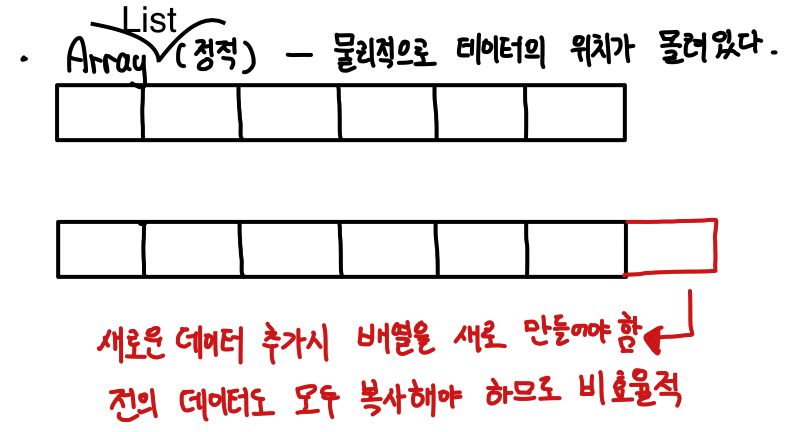 List
· Array (정적) — 물리적으로 데이터의 위치가 몰려있다.
새로운 데이터 추가시 배열을 새로 만들어야 함
전의 데이터도 모두 복사해야 하므로 비효율적